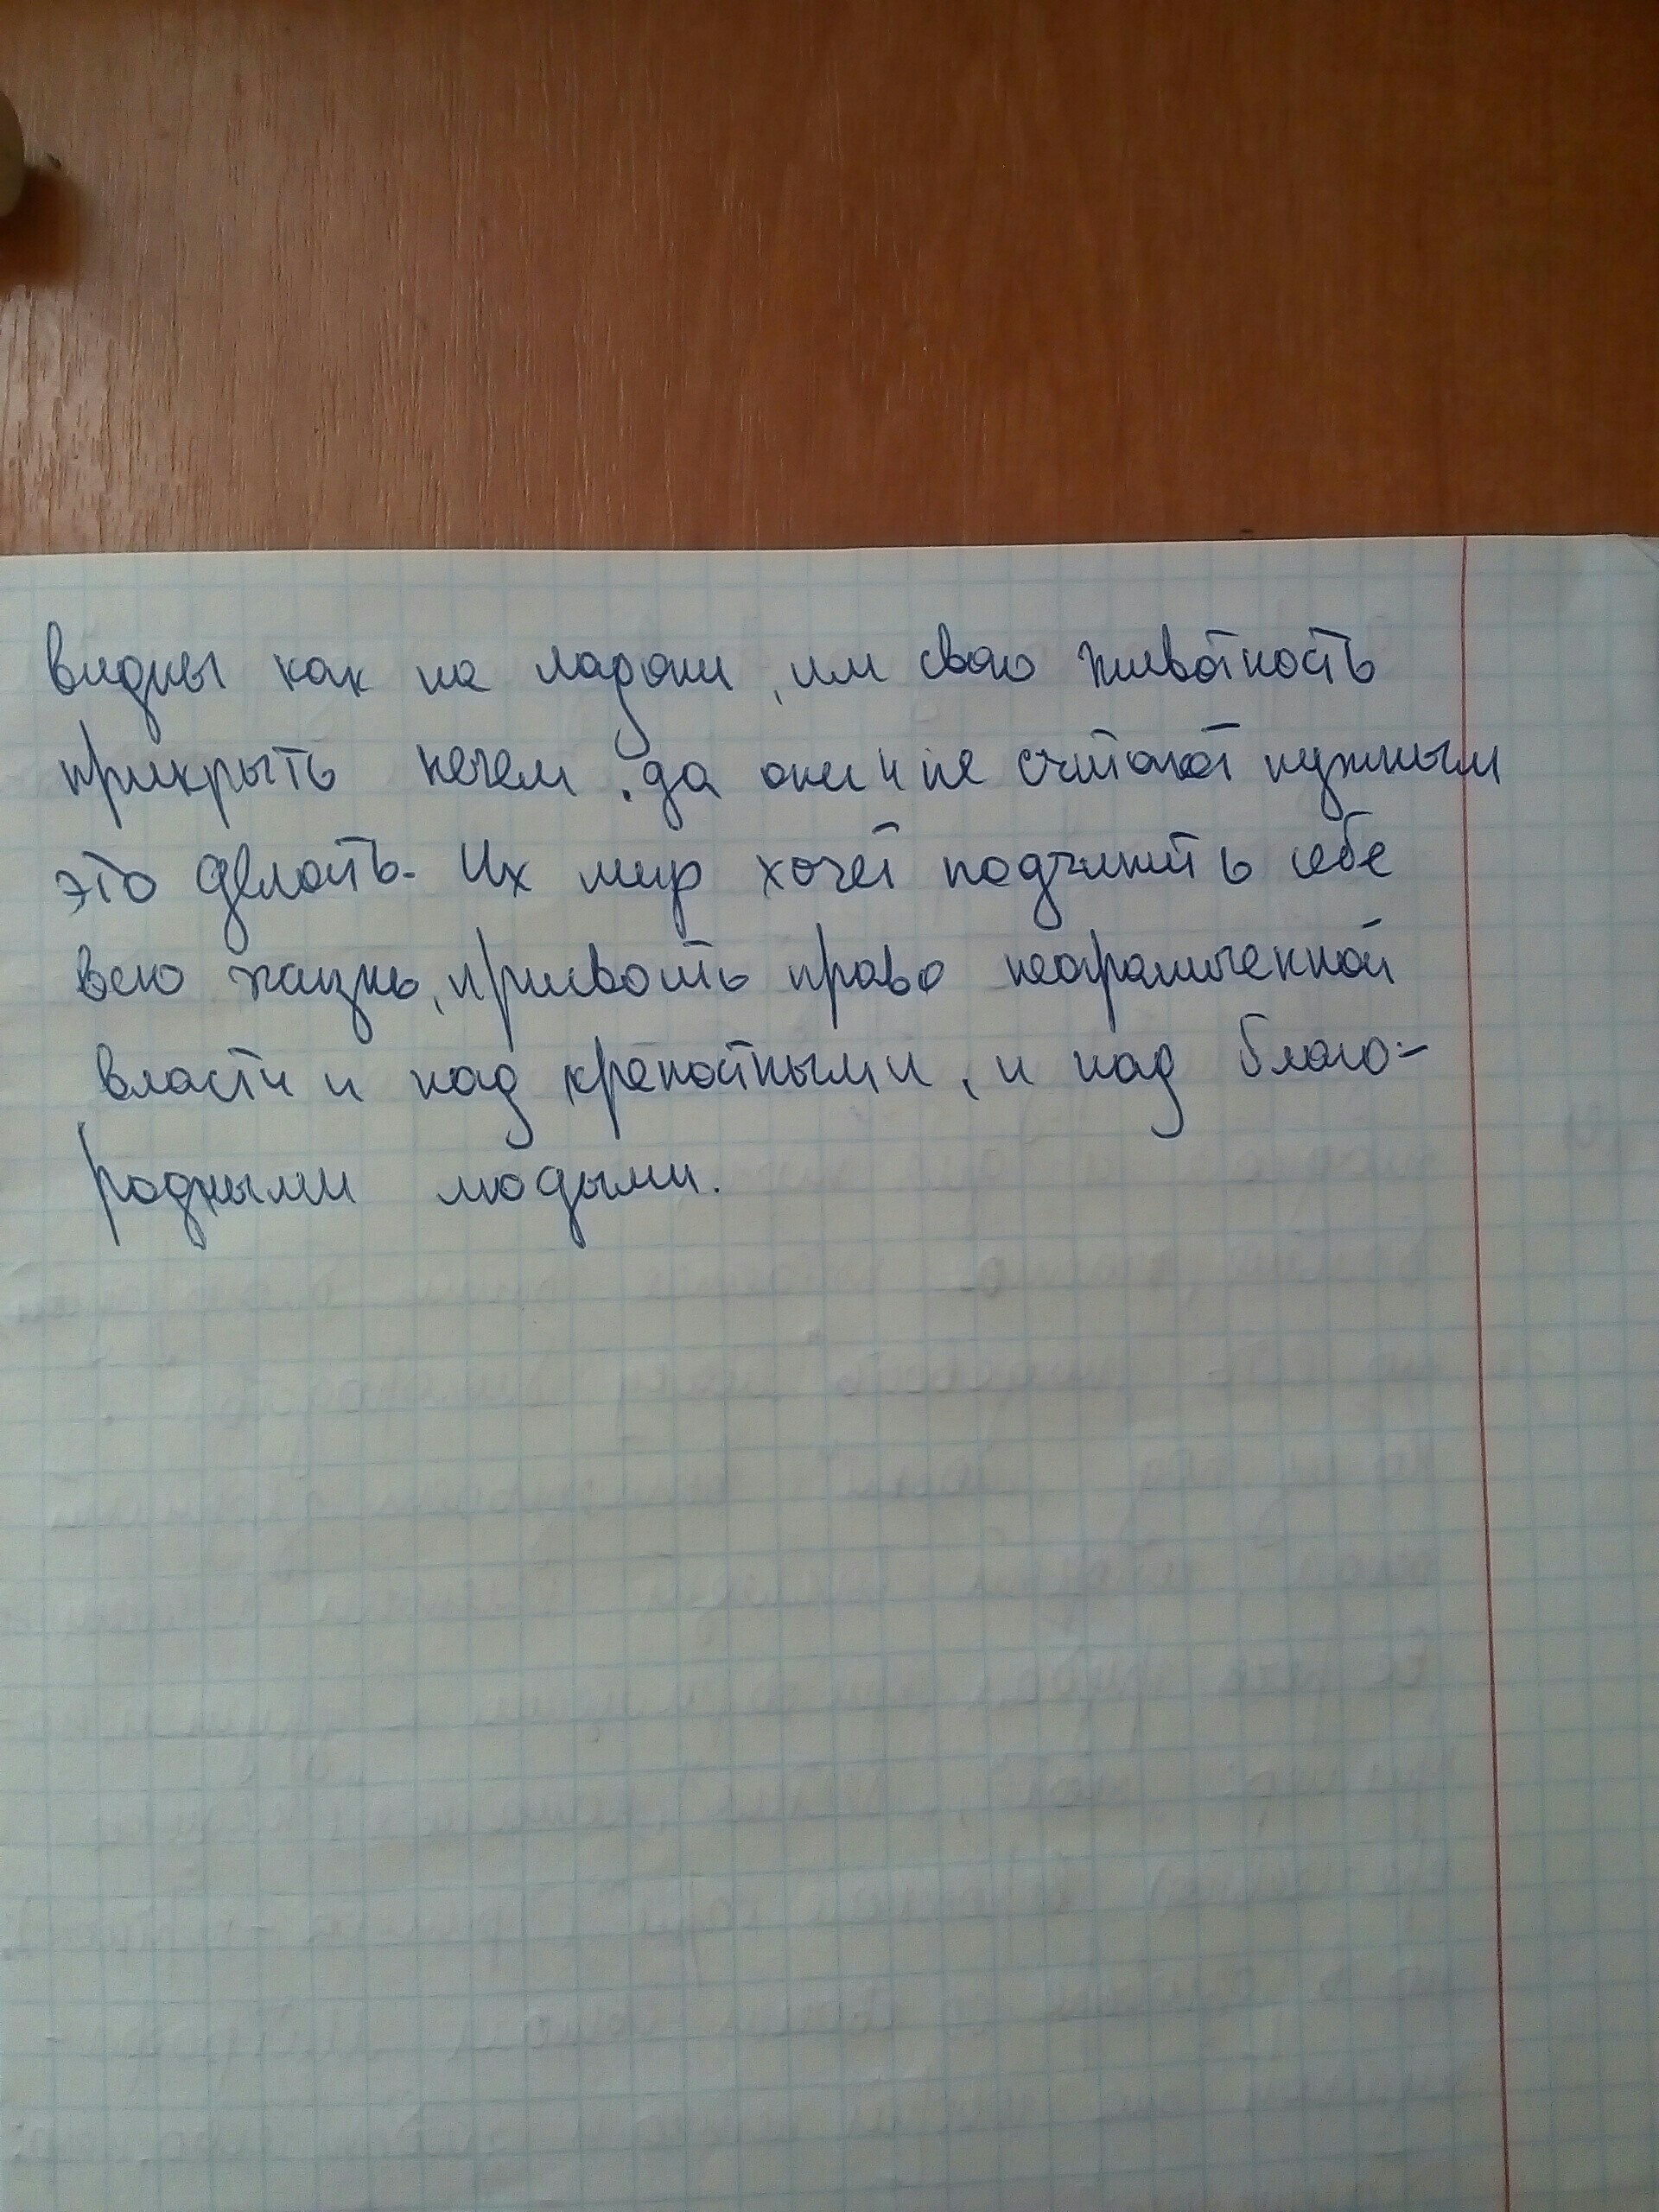 видны как на ладони, им свою животность
прикрыть нечем. да они и не считают нужным
это делать. Их мир хочет подчинить себе
всю жизнь, присвоить право неограниченной
власти и над крепостными, и над благо-
родными людьми.